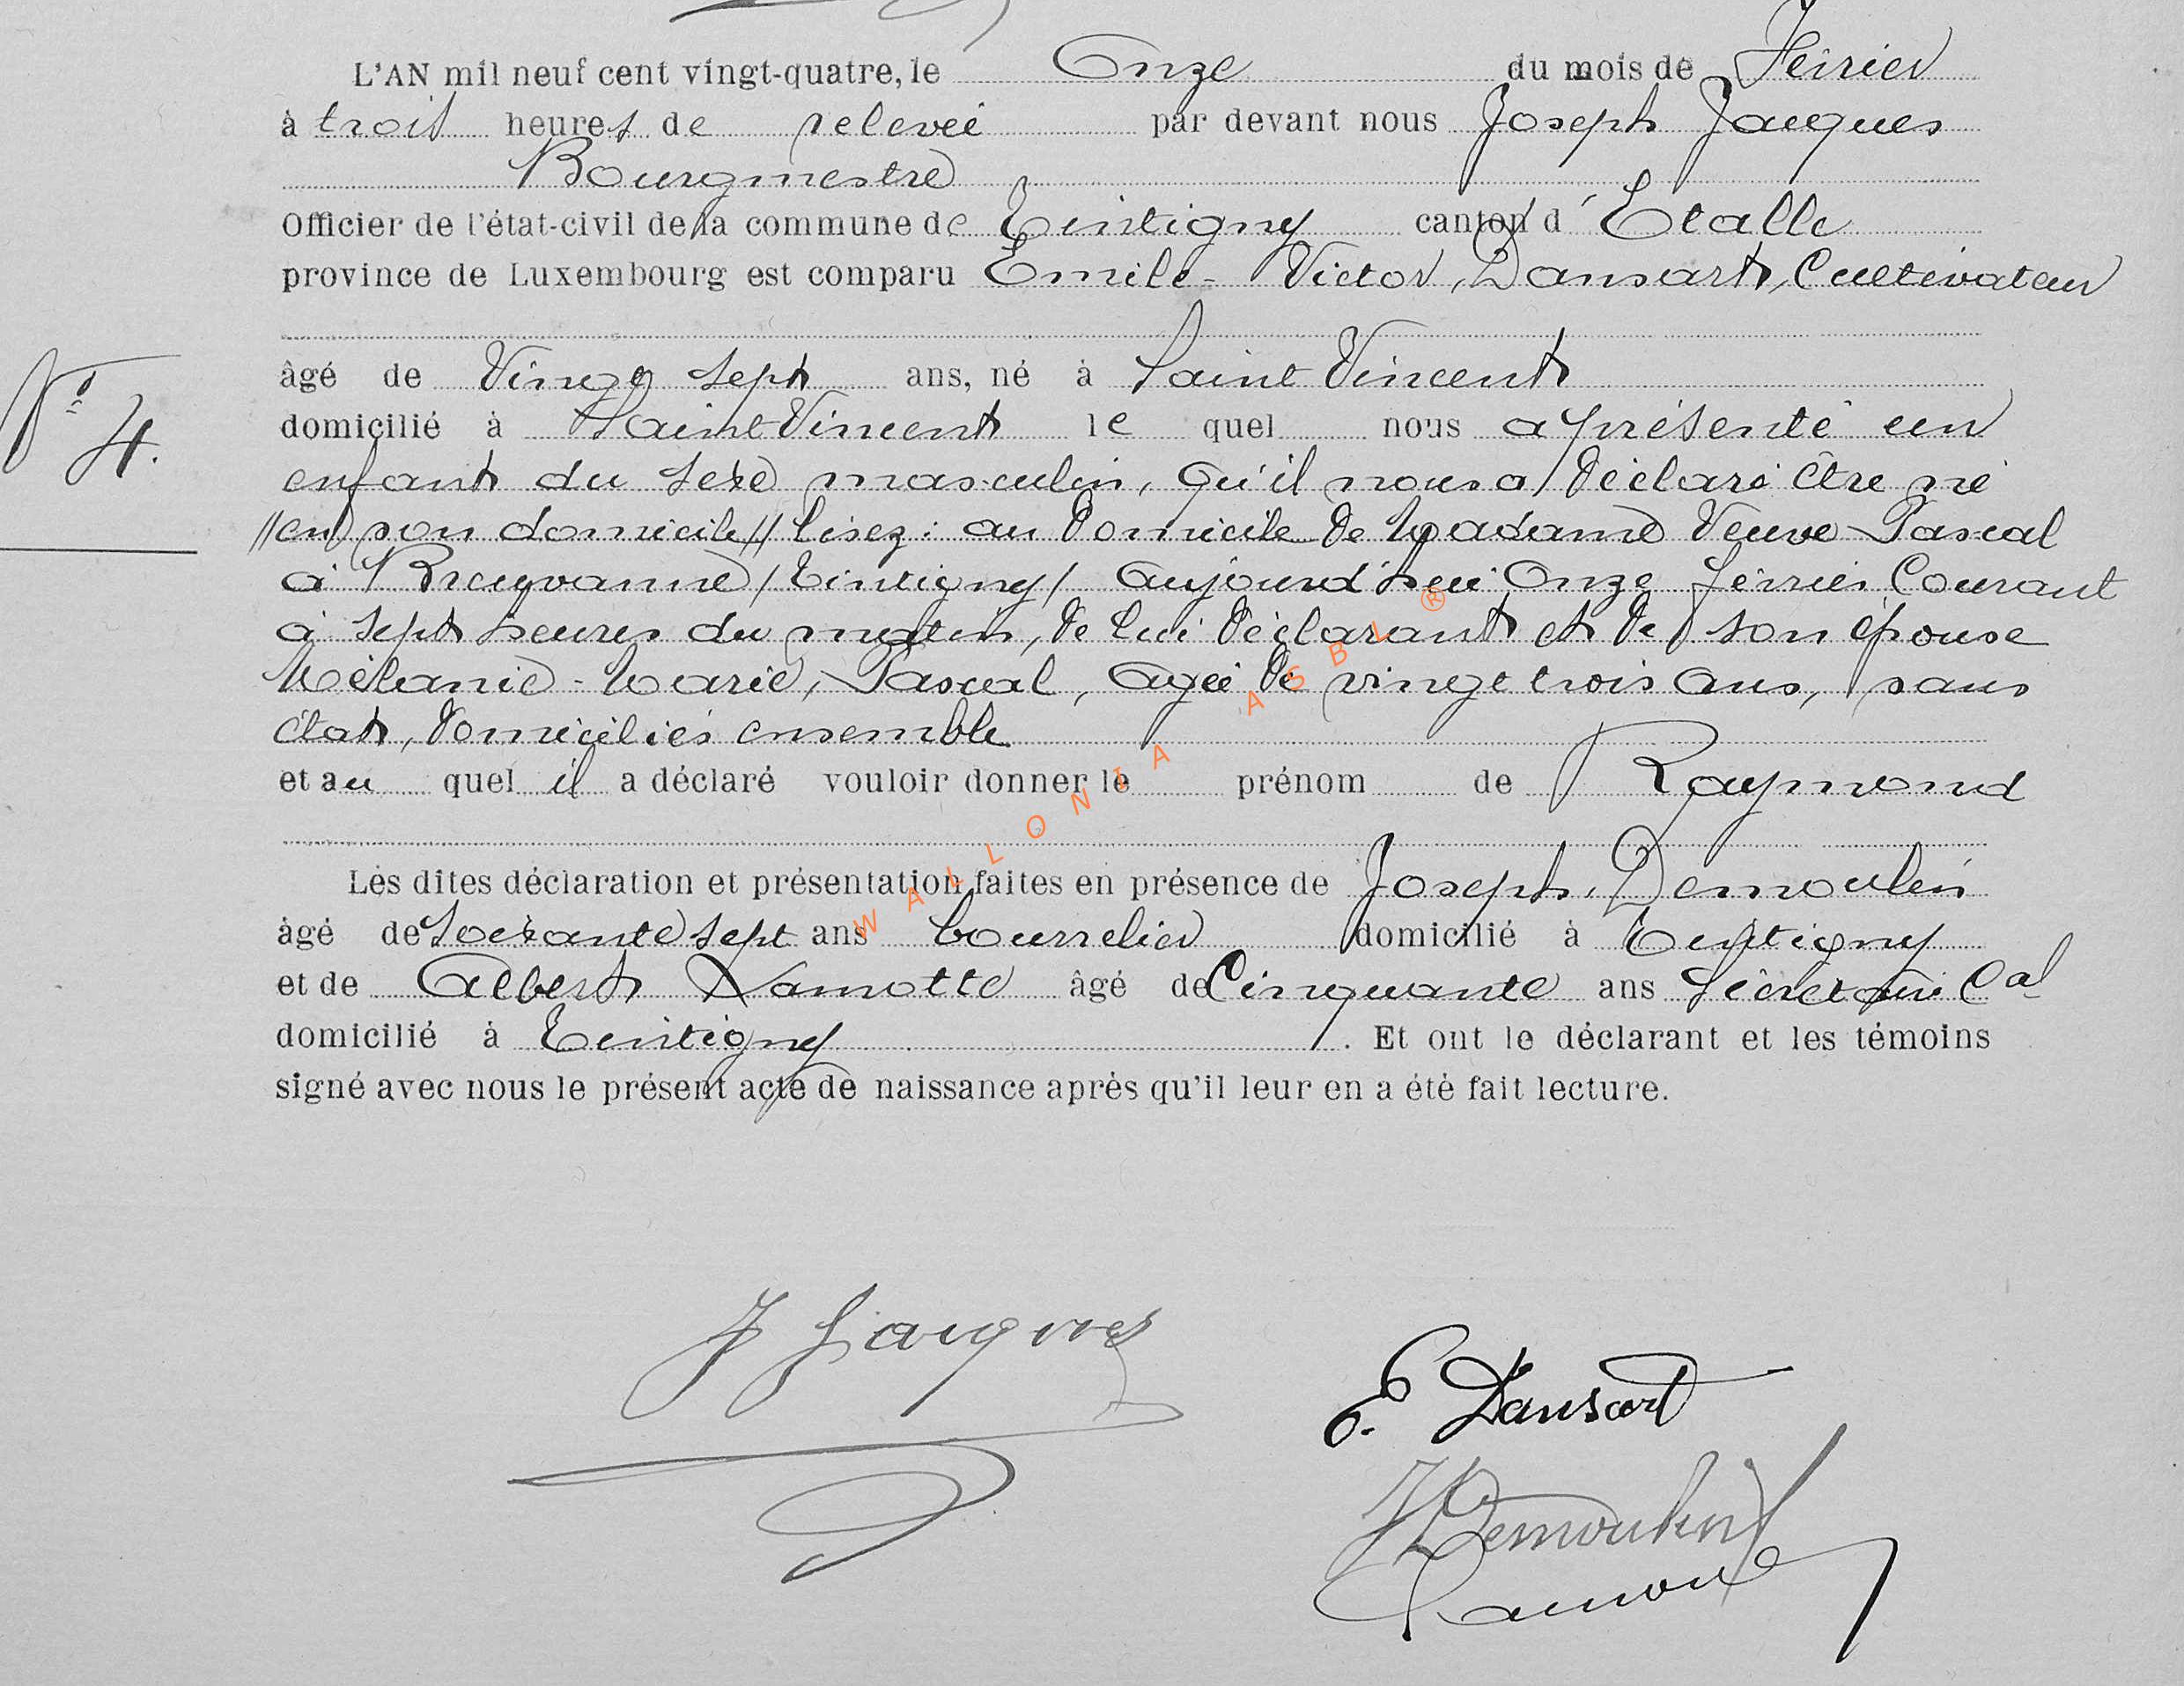 L'AN mil neuf cent vingt-quatre, le Onze du mois de Février
à trois heures de relevée par devant nous Joseph Jacques
Bourgmestre
Officier de l'état-civil de la commune de Tintigny canton d' Etalle
province de Luxembourg est comparu Emile-Victor, Dansart, Cultivateur
âgé de Vingt sept ans, né à Saint Vincent
domicilié à Saint Vincent le quel nous a présenté un
enfant du sexe masculin, qu'il nous a déclaré être né
//en son domicile// lisez : au domicile de Madame Veuve Pascal
à Breuvanne /Tintigny/ aujourd'hui Onze février Courant
à sept heures du matin, de lui déclarant et de son épouse
Mélanie-Marie, Pascal, agée de vingt trois ans, sans
état, domiciliés ensemble
et au quel il a déclaré vouloir donner le prénom de Raymond
Les dites déclaration et présentation faites en présence de Joseph, Demoulin
âgé de Soixante sept ans bourrelier domicilié à Tintigny
et de Albert Lamotte âgé de Cinquante ans Secrétaire Cal
domicilié à Tintigny . Et ont le déclarant et les témoins
signé avec nous le présent acte de naissance après qu'il leur en a été fait lecture.
No 4.
WALLONIA ASBL ®
J Jacques
E. Dansart
J Demoulin